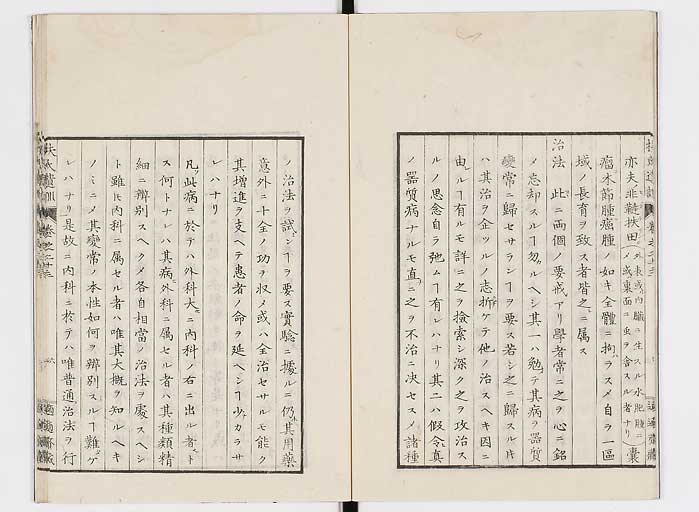 亦夫non韃扶田
瘤木節腫癌腫ノ如キ全體ニ拘ラスメ自ラ一區
域ノ長育ヲ致ス者皆之ニ属ス
治法 此ニ両個ノ要戒アリ學者常ニ之ヲ心ニ銘
メ忘却スルヿ勿ルヘシ其一ハ勉テ其病ヲ器質
變常ニ歸セサランヿヲ要ス若シ之ニ歸スル片
ハ其治ヲ企ツルノ志挫ケテ他ノ治スヘキ因ニ
由ルヿ有ルモ詳ニ之ヲ撿索シ深ク之ヲ攻治ス
ルノ思念自ラ弛ムヿ有レハナリ其二ハ假令真
ノ器質病ナルモ直ニ之ヲ不治ニ决セスメ諸種
ノ治法ヲ試ンヿヲ要ス實驗ニ據ルニ仍其用藥
意外ニ十全ノ功ヲ収メ或ハ全治セサルモ能ク
其増進ヲ支ヘテ患者ノ命ヲ延ヘシヿ少カラサ
レハナリ
凡ソ此病ニ於テハ外科大ニ内科ノ右ニ出ル者トス
何トナレハ其病外科ニ属セル者ハ其種類精
細ニ辨別スヘクメ各自相當ノ治法ヲ處スヘシ
ト雖𪜈内科ニ属セル者ハ唯其大概ヲ知ルヘキ
ノミニメ其變常ノ本性如何ヲ辨別スルヿ難ケ
レハナリ是故ニ内科ニ於テハ唯普通治法ヲ行
扶氏經驗遺訓 卷之二十三